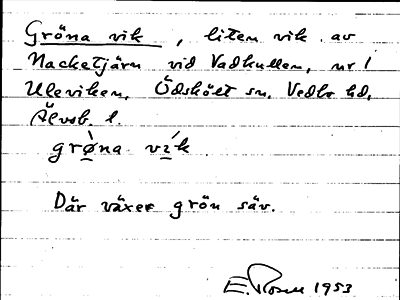 Gröna vik, liten vik av
Nacketjärn vid Vadkullen, nr i
Uleviken, Ödskölt sn, Vedbo hd,
Älvsb. l.
grø̀na vík
Där växer grön säv.
E. Rosen 1953